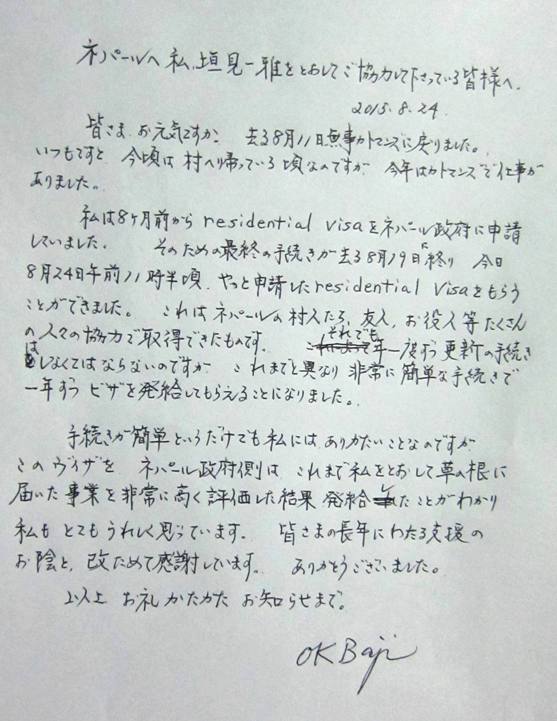 ネパールへ私、垣見一雅をとおしてご協力して下さっている皆様へ、
2015.8.24.
皆さまお元気ですか。 去る8月11日無事カトマンズに戻りました。
いつもですと 今頃は 村へ帰っている頃なのですが 今年はカトマンズで仕事が
ありました。
私は8ヶ月前から residential visaをネパール政府に申請
していました。 そのための最終の手続きが去る8月19日に終り 今日
8月24日午前11時半頃、やっと申請したresidential visaをもらう
ことができました。 これはネパールの村人たち、友人、お役人等たくさん
の人々の協力で取得できたものです。 それでも年一度ずつ更新の手続き
はしなくてはならないのですが これまでと異なり非常に簡単な手続きで
一年ずつ ビザを発給してもらえることになりました。
手続きが簡単というだけでも私には、ありがたいことなのですが
このヴィザを ネパール政府側は これまで私をとおして草の根に
届いた事業を非常に高く評価した結果 発給したことがわかり
私も とてもうれしく思っています。 皆さまの長年にわたる支援の
お陰と、改ためて感謝しています。 ありがとうございました。
以上 お礼かたがた お知らせまで。
OK Baji